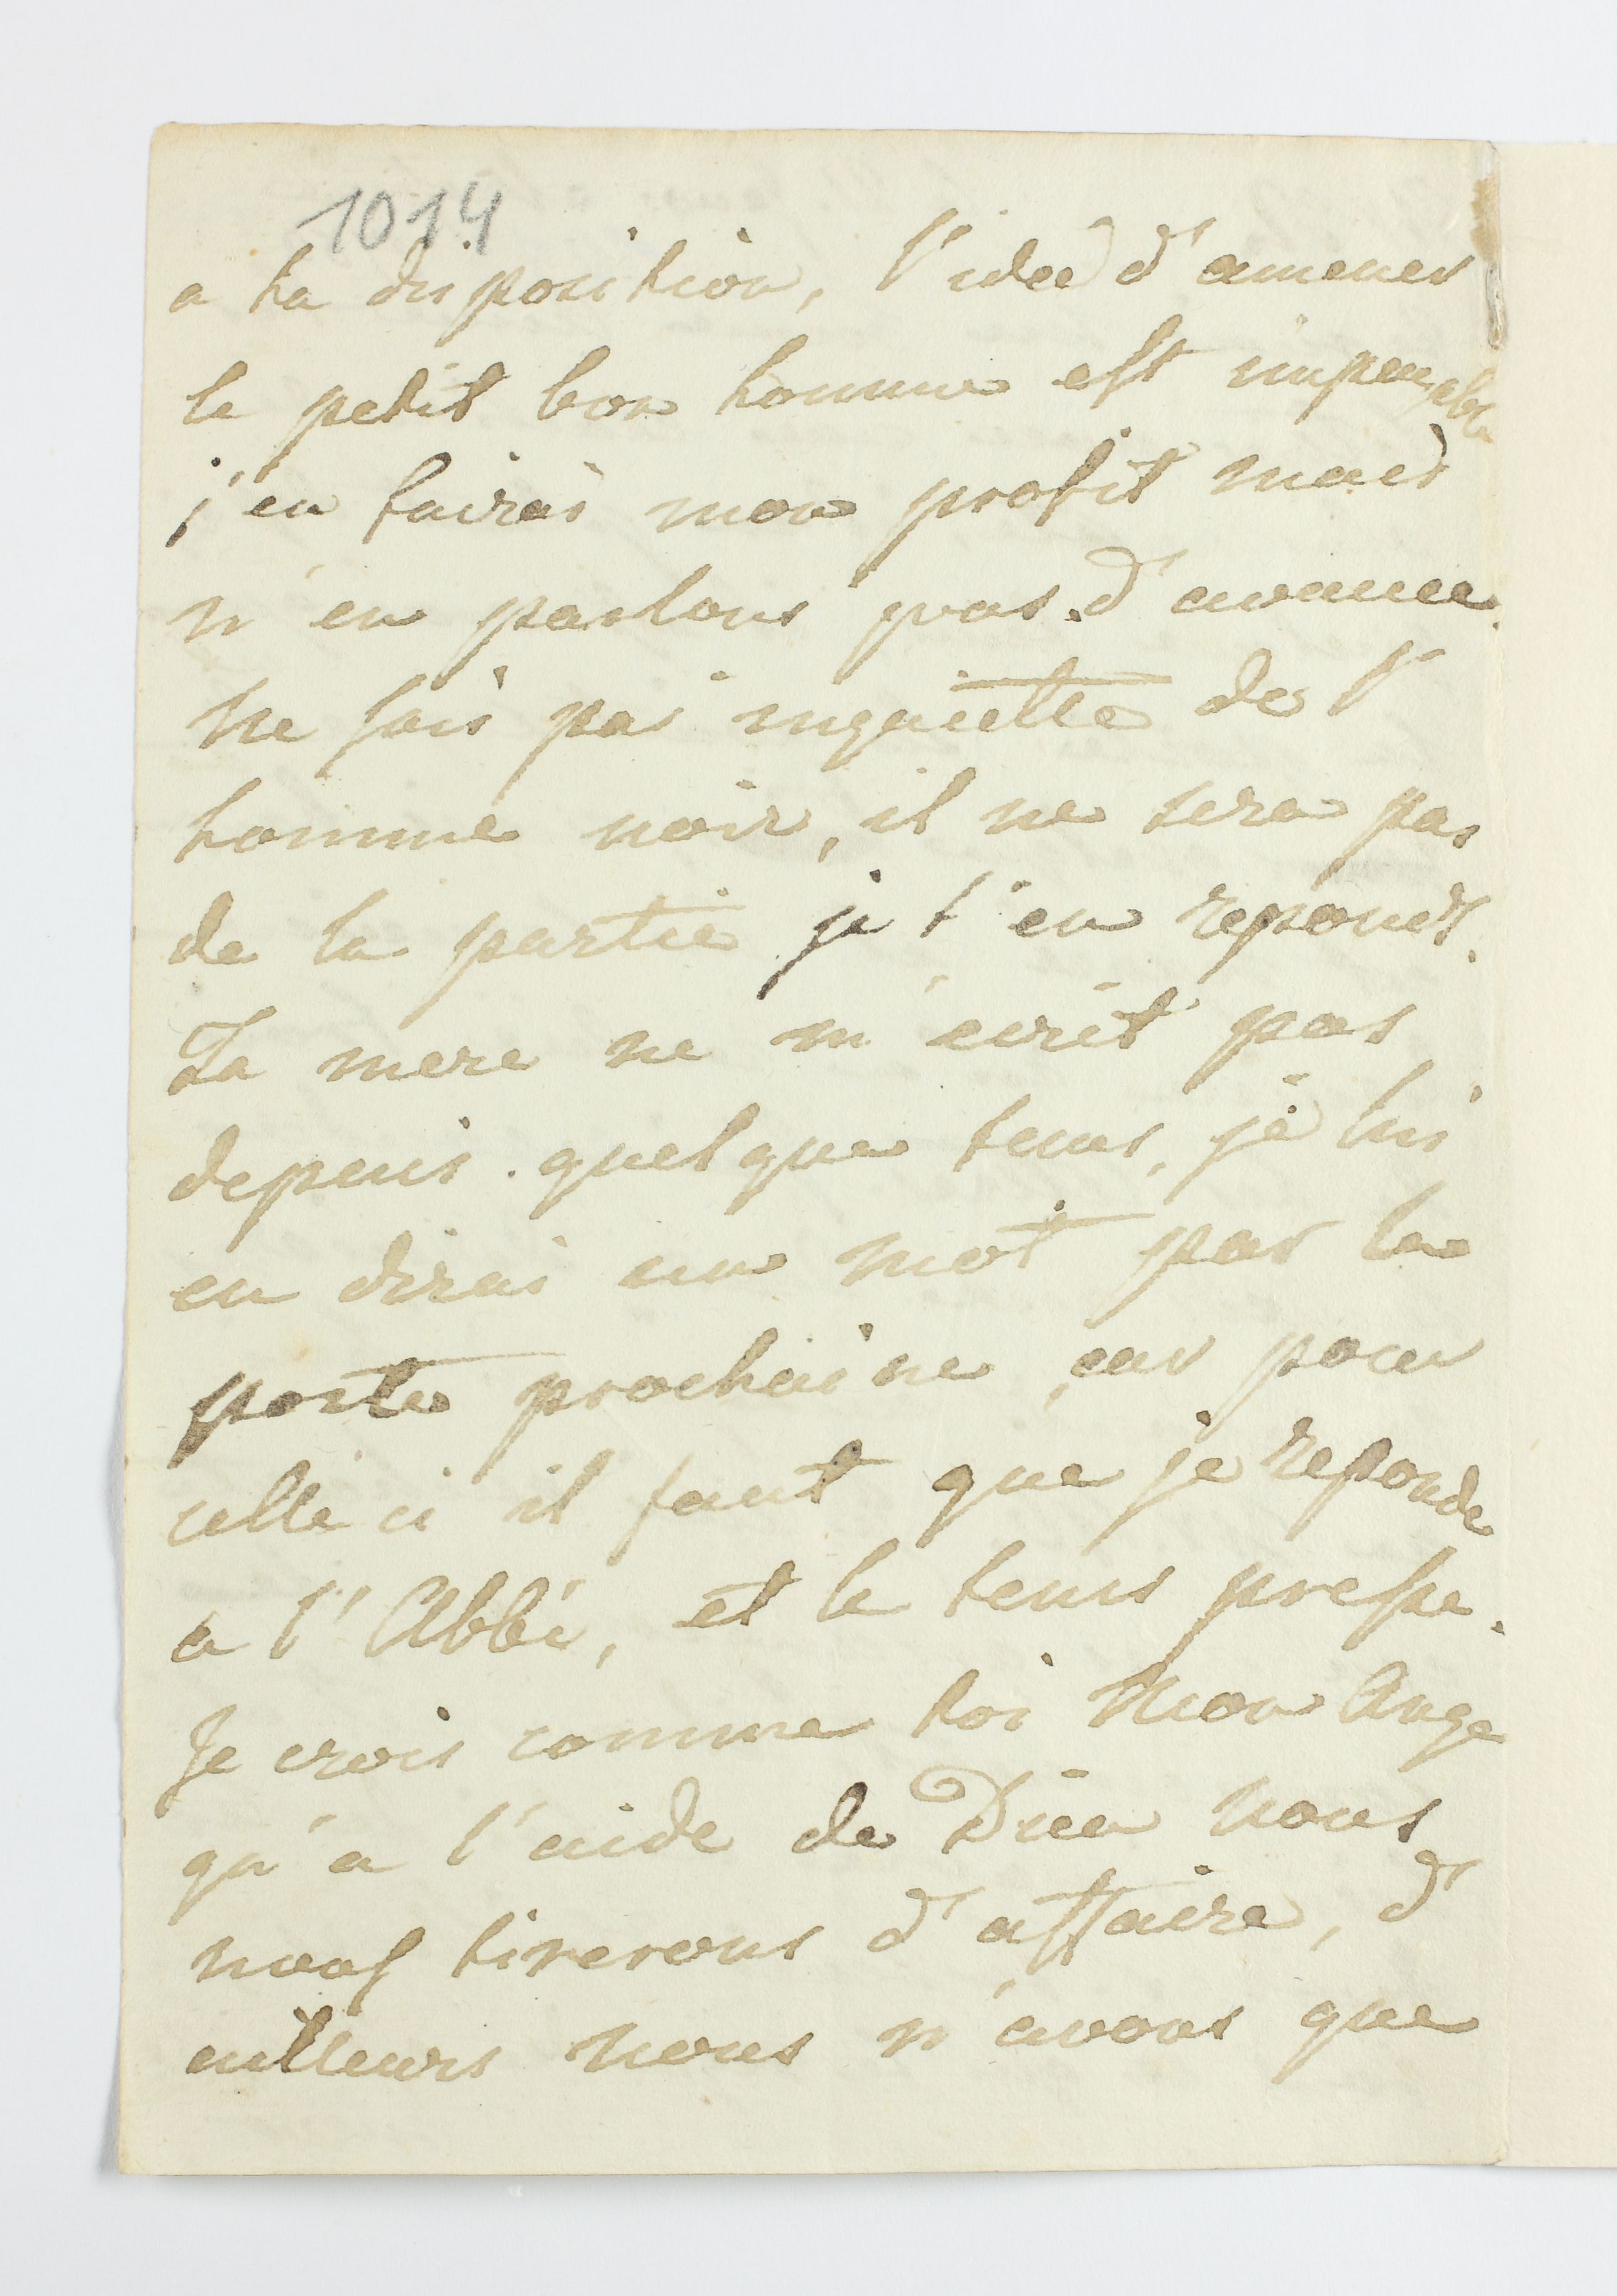 1014
a ta disposition, l'ideé d'amener
le petit bon homme est impayable
j'en fairai mon profit mais
n'en parlons pas d'avance.
Ne sois pas inquiette de l'
homme noir, il ne sera pas
de la partie je t'en reponds.
Ta mere ne m'ecrit pas
depuis quelque tems, je lui
en dirai un mot par la
poste prochaine, car pour
celle ci il faut que je reponde
a l'Abbé, et le tems presse.
Je crois comme toi Mon Ange
qu'a l'aide de Dieu nous
nous tirerons d'affaire, d'
ailleurs nous n'avons que